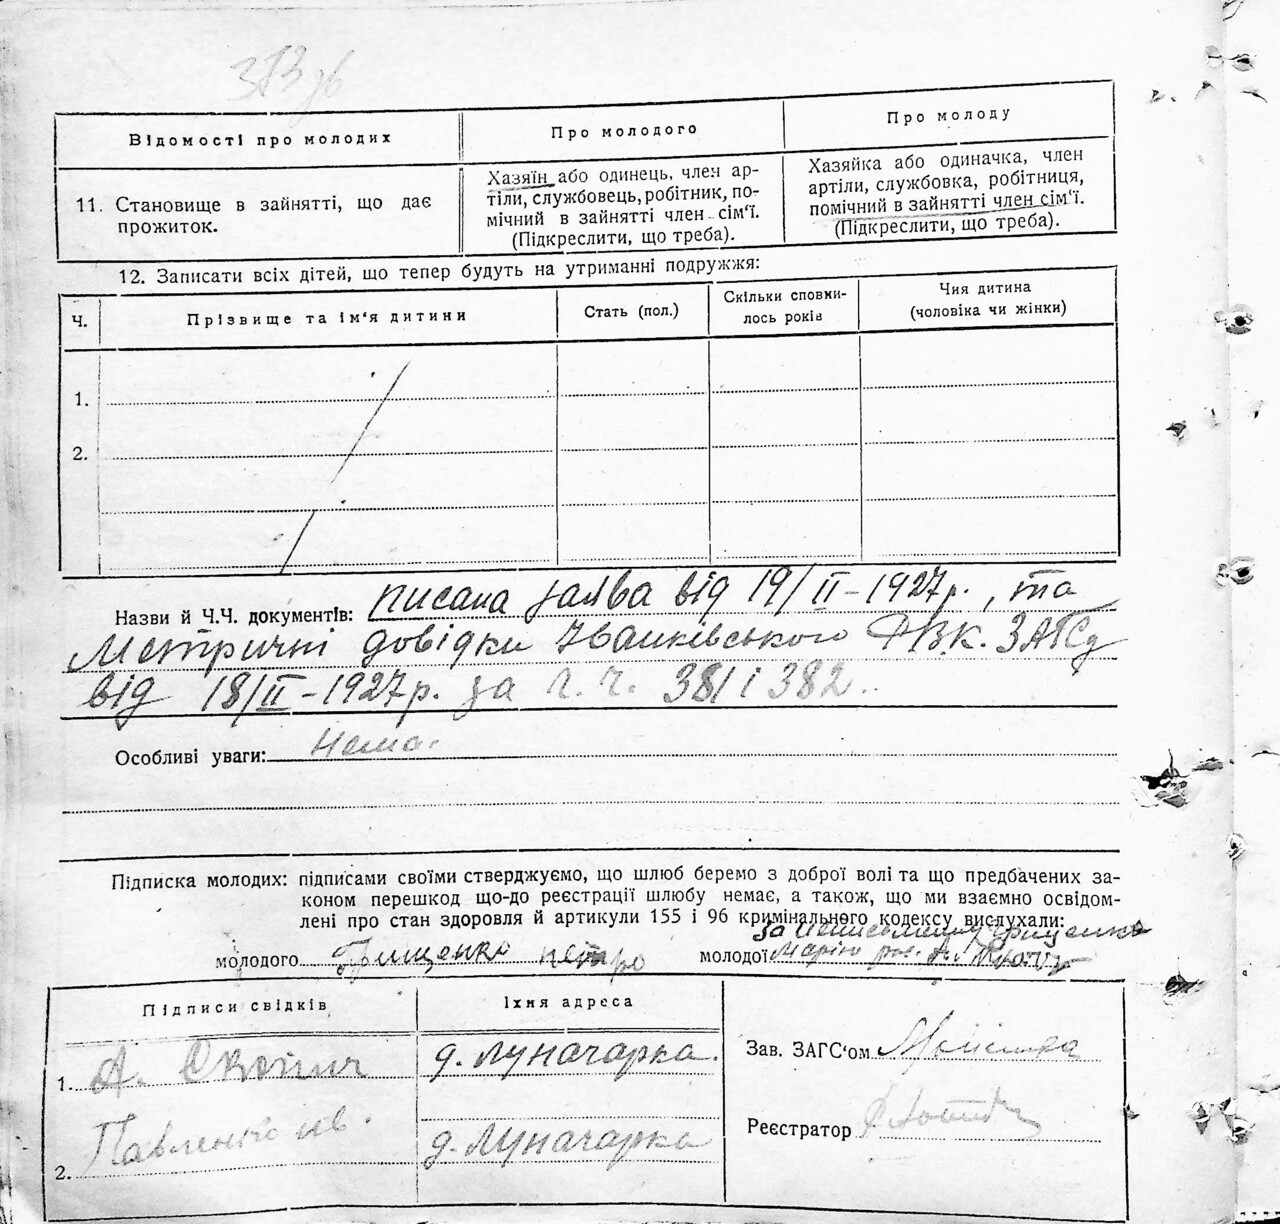 373 зв
Відомості про молодих
Про молодого
Про молоду
11. Становище в зайнятті, що дає
прожиток.
Хазяїн або одинець, член ар-
тілі, службовець, робітник, по-
мічний в зайнятті член сім'ї.
(Підкреслити, що треба).
Хазяйка або одиначка, член
артілі, службовка, робітниця,
помічний в зайнятті член сім'ї.
(Підкреслити, що треба).
12. Записати всіх дітей, що тепер будуть на утриманні подружжя:
Ч.
Прізвище та ім'я дитини
Стать (пол.)
Скільки сповни-
лось років
Чия дитина
(чоловіка чи жінки)
1.
2.
Назви й Ч.Ч. документів: писана заява від 19/II–1927р., та
Метричні довідки Іванківського Р.В.К. ЗАГСу
від 18/II–1927р. за г. ч. 381 і 382.
Особливі уваги: Нема.
Підписка молодих: підписами своїми стверджуємо, що шлюб беремо з доброї волі та що предбачених за-
коном перешкод що-до реєстрації шлюбу немає, а також, що ми взаємно освідом-
лені про стан здоровля й артикули 155 і 96 кримінального кодексу вислухали:
молодого Грищенко Петро
за неписьменну Грищенко
молодої Марію рос. А.
Підписи свідків
Їхня адреса
1. А.
д. Луначарка.
Павленко
2.
д. Луначарка
Зав. ЗАГС'ом
Реєстратор